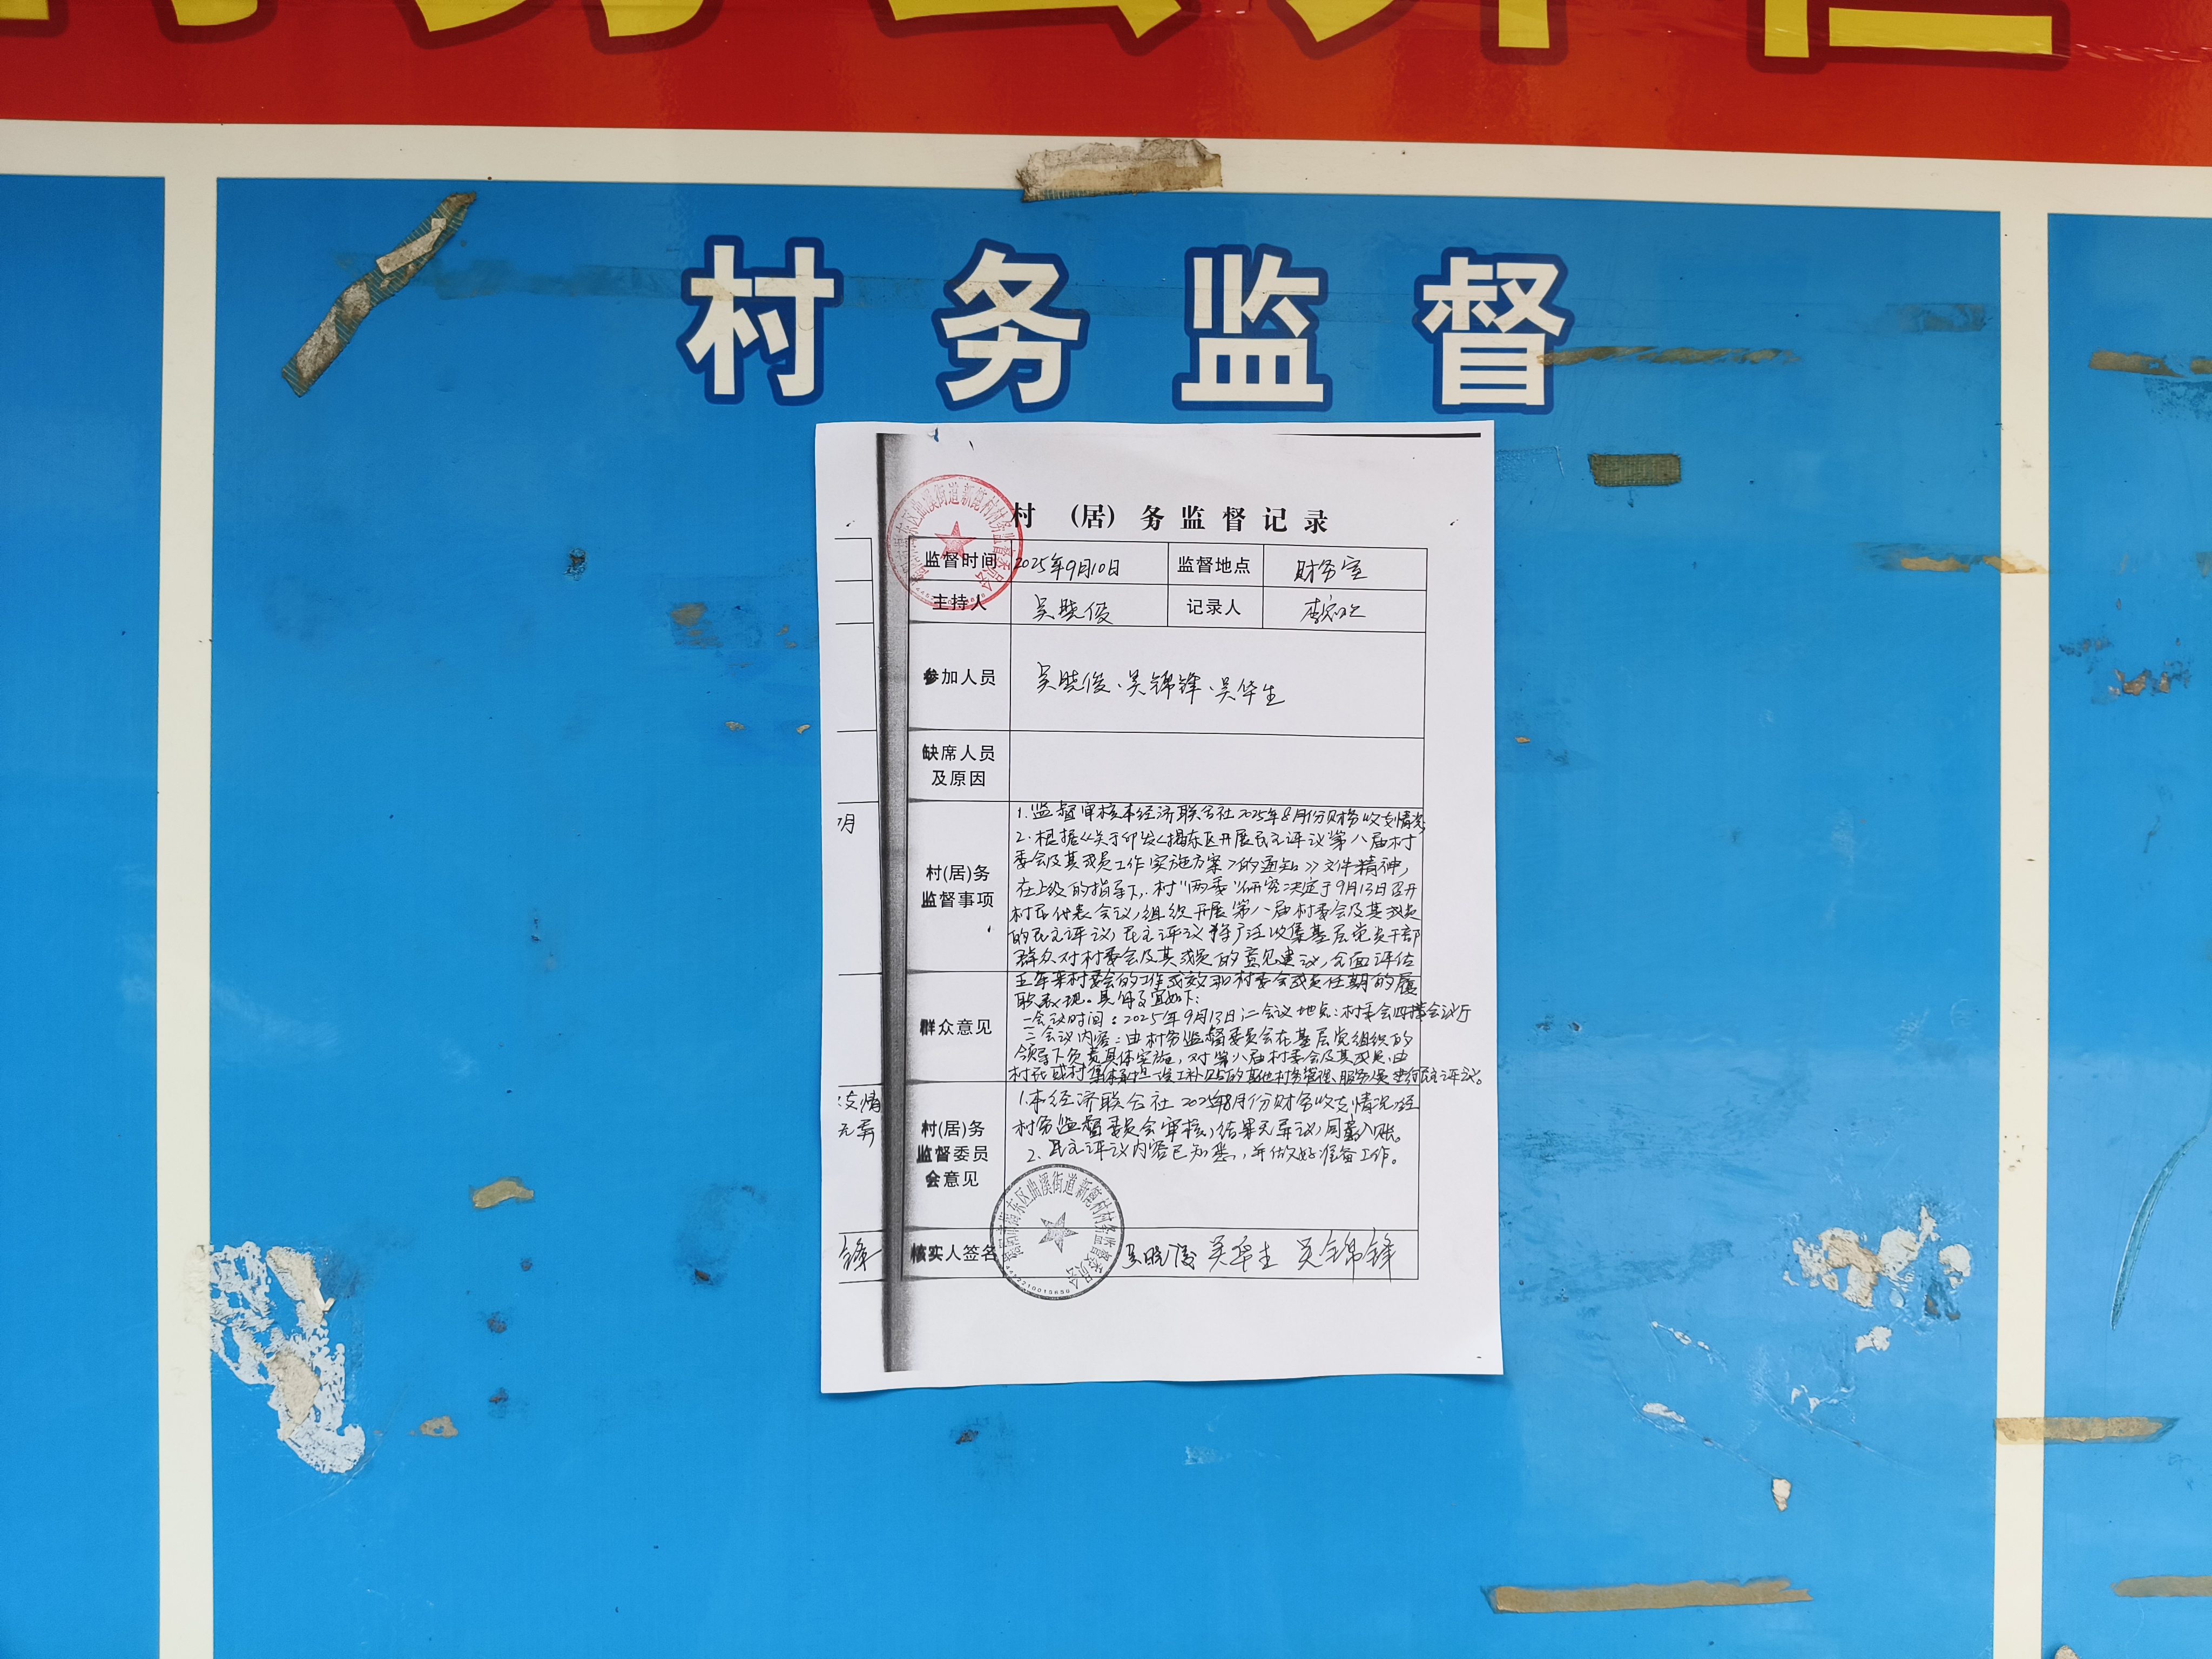 村务监督
村（居）务监督记录
监督时间 2025年9月10日 监督地点 财务室
主持人 吴晓俊 记录人
参加人员 吴晓俊、吴锦锋、吴华生
缺席人员
及原因
村(居)务
监督事项
1.监督审核本经济联合社2025年8月份财务收支情况
2.根据《关于印发<揭东区开展民主评议第八届村
委会及其成员工作实施方案>的通知》文件精神，
在上级的指导下，村"两委"研究决定于9月13日召开
村民代表会议，组织开展第八届村委会及其成员
的民主评议，民主评议将广泛收集基层党员干部
群众对村委会及其成员的意见建议，全面评估
五年来村委会的工作成效和村委会成员任期的履
职表现。具体事宜如下：
一会议时间：2025年9月13日；二会议地点：村委会四楼会议厅
三会议内容：由村务监督委员会在基层党组织的
领导下负责具体实施，对第八届村委会及其成员、由
村民或村集体承担误工补贴的其他村务管理、服务人员进行民主评议。
群众意见
村(居)务
监督委员
会意见
1.本经济联合社2025年8月份财务收支情况经
村务监督委员会审核，结果无异议，同意入账。
2、民主评议内容已知悉，并做好准备工作。
核实人签名 吴晓俊 吴华生 吴锦锋
揭东区曲溪街道新 村村务监督委员会
揭东区曲溪街道新 村村务监督委员会
月
支情
无异
锋